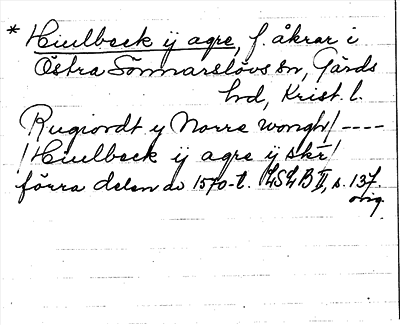 * Hiulbeck ij agre, f. åkrar i
Östra Sönnarslövs sn, Gärds
hd, Krist. l.
Rugiordt y Norre wongh / ----
/ Hiulbeck ij agre ij skr /
förra delen av 1570-t. LSLB II, s. 137.
orig.